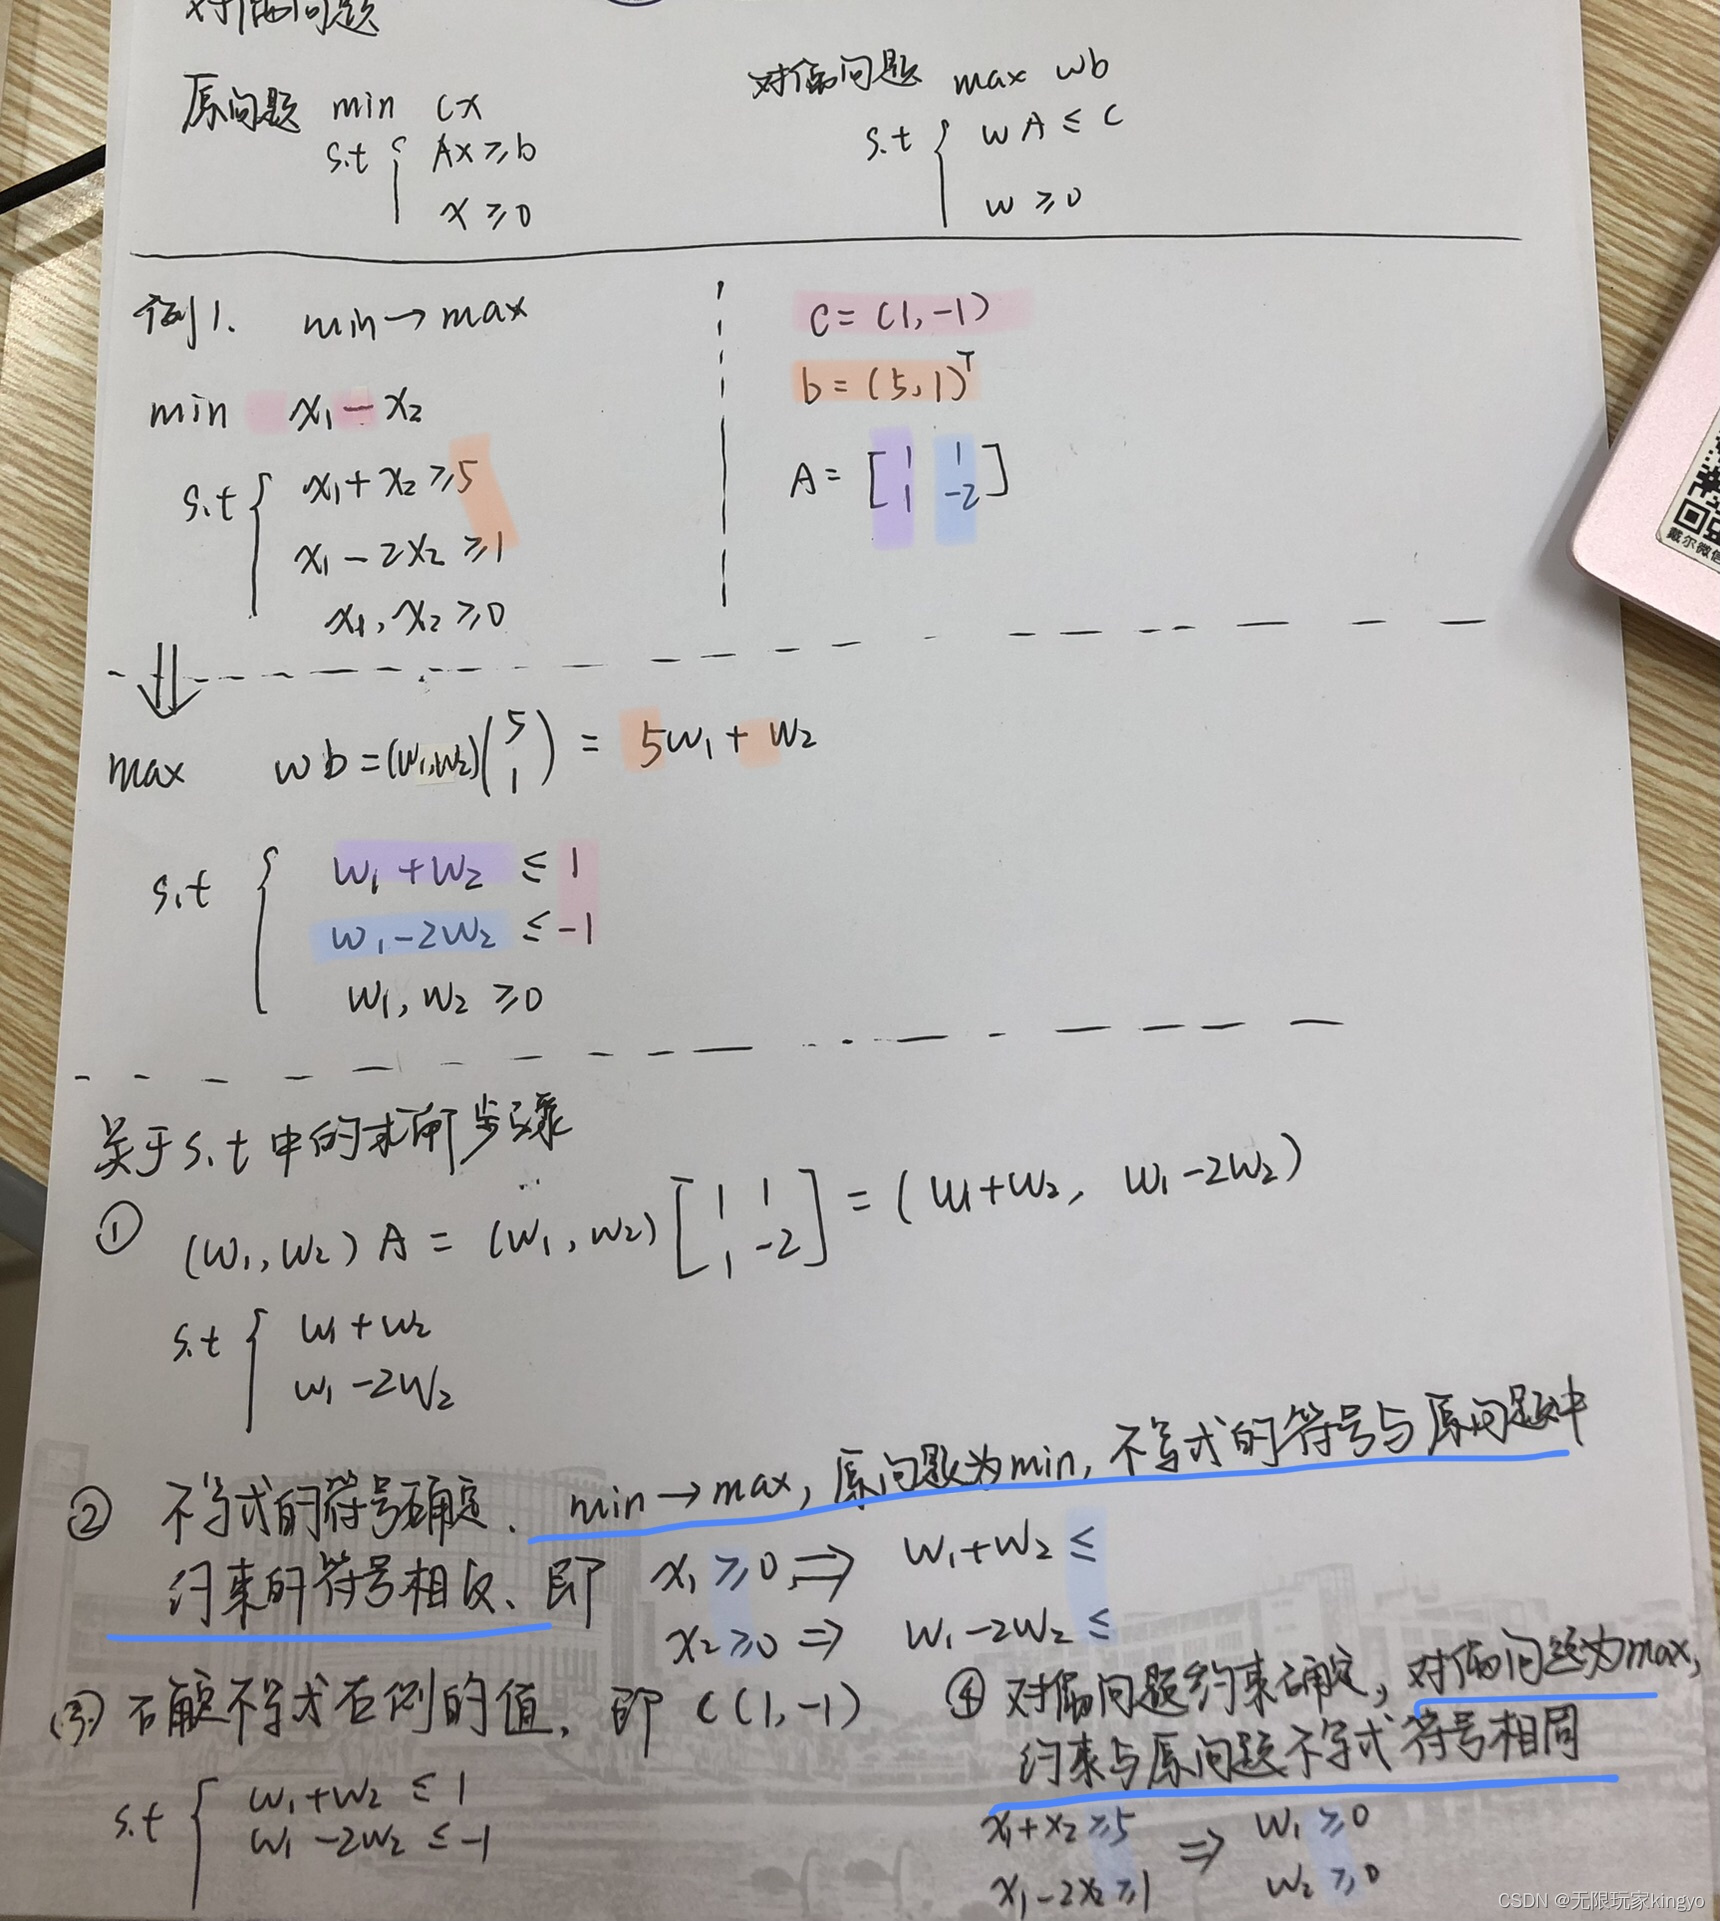 对偶问题
原问题 min cx
s.t { Ax ≥ b
x ≥ 0
对偶问题 max wb
s.t { wA ≤ c
w ≥ 0
例1. min → max
min x₁ - x₂
s.t { x₁ + x₂ ≥ 5
x₁ - 2x₂ ≥ 1
x₁, x₂ ≥ 0
c = (1, -1)
b = (5, 1)ᵀ
A = [1 1
1 -2]
⇓
max wb = (w₁, w₂)(5
1) = 5w₁ + w₂
s.t { w₁ + w₂ ≤ 1
w₁ - 2w₂ ≤ -1
w₁, w₂ ≥ 0
关于s.t中的求解步骤
① (w₁, w₂)A = (w₁, w₂)[1 1
1 -2] = (w₁ + w₂, w₁ - 2w₂)
s.t { w₁ + w₂
w₁ - 2w₂
② 不等式的符号确定、min → max, 原问题为min, 不等式的符号与原问题中
约束的符号相反、即 x₁ ≥ 0 ⇒ w₁ + w₂ ≤
x₂ ≥ 0 ⇒ w₁ - 2w₂ ≤
③ 确定不等式右侧的值, 即 c(1, -1)
s.t { w₁ + w₂ ≤ 1
w₁ - 2w₂ ≤ -1
④ 对偶问题约束确定, 对偶问题为max,
约束与原问题不等式符号相同
x₁ + x₂ ≥ 5 ⇒ w₁ ≥ 0
x₁ - 2x₂ ≥ 1 w₂ ≥ 0
戴尔微信
CSDN @无限玩家kingyo